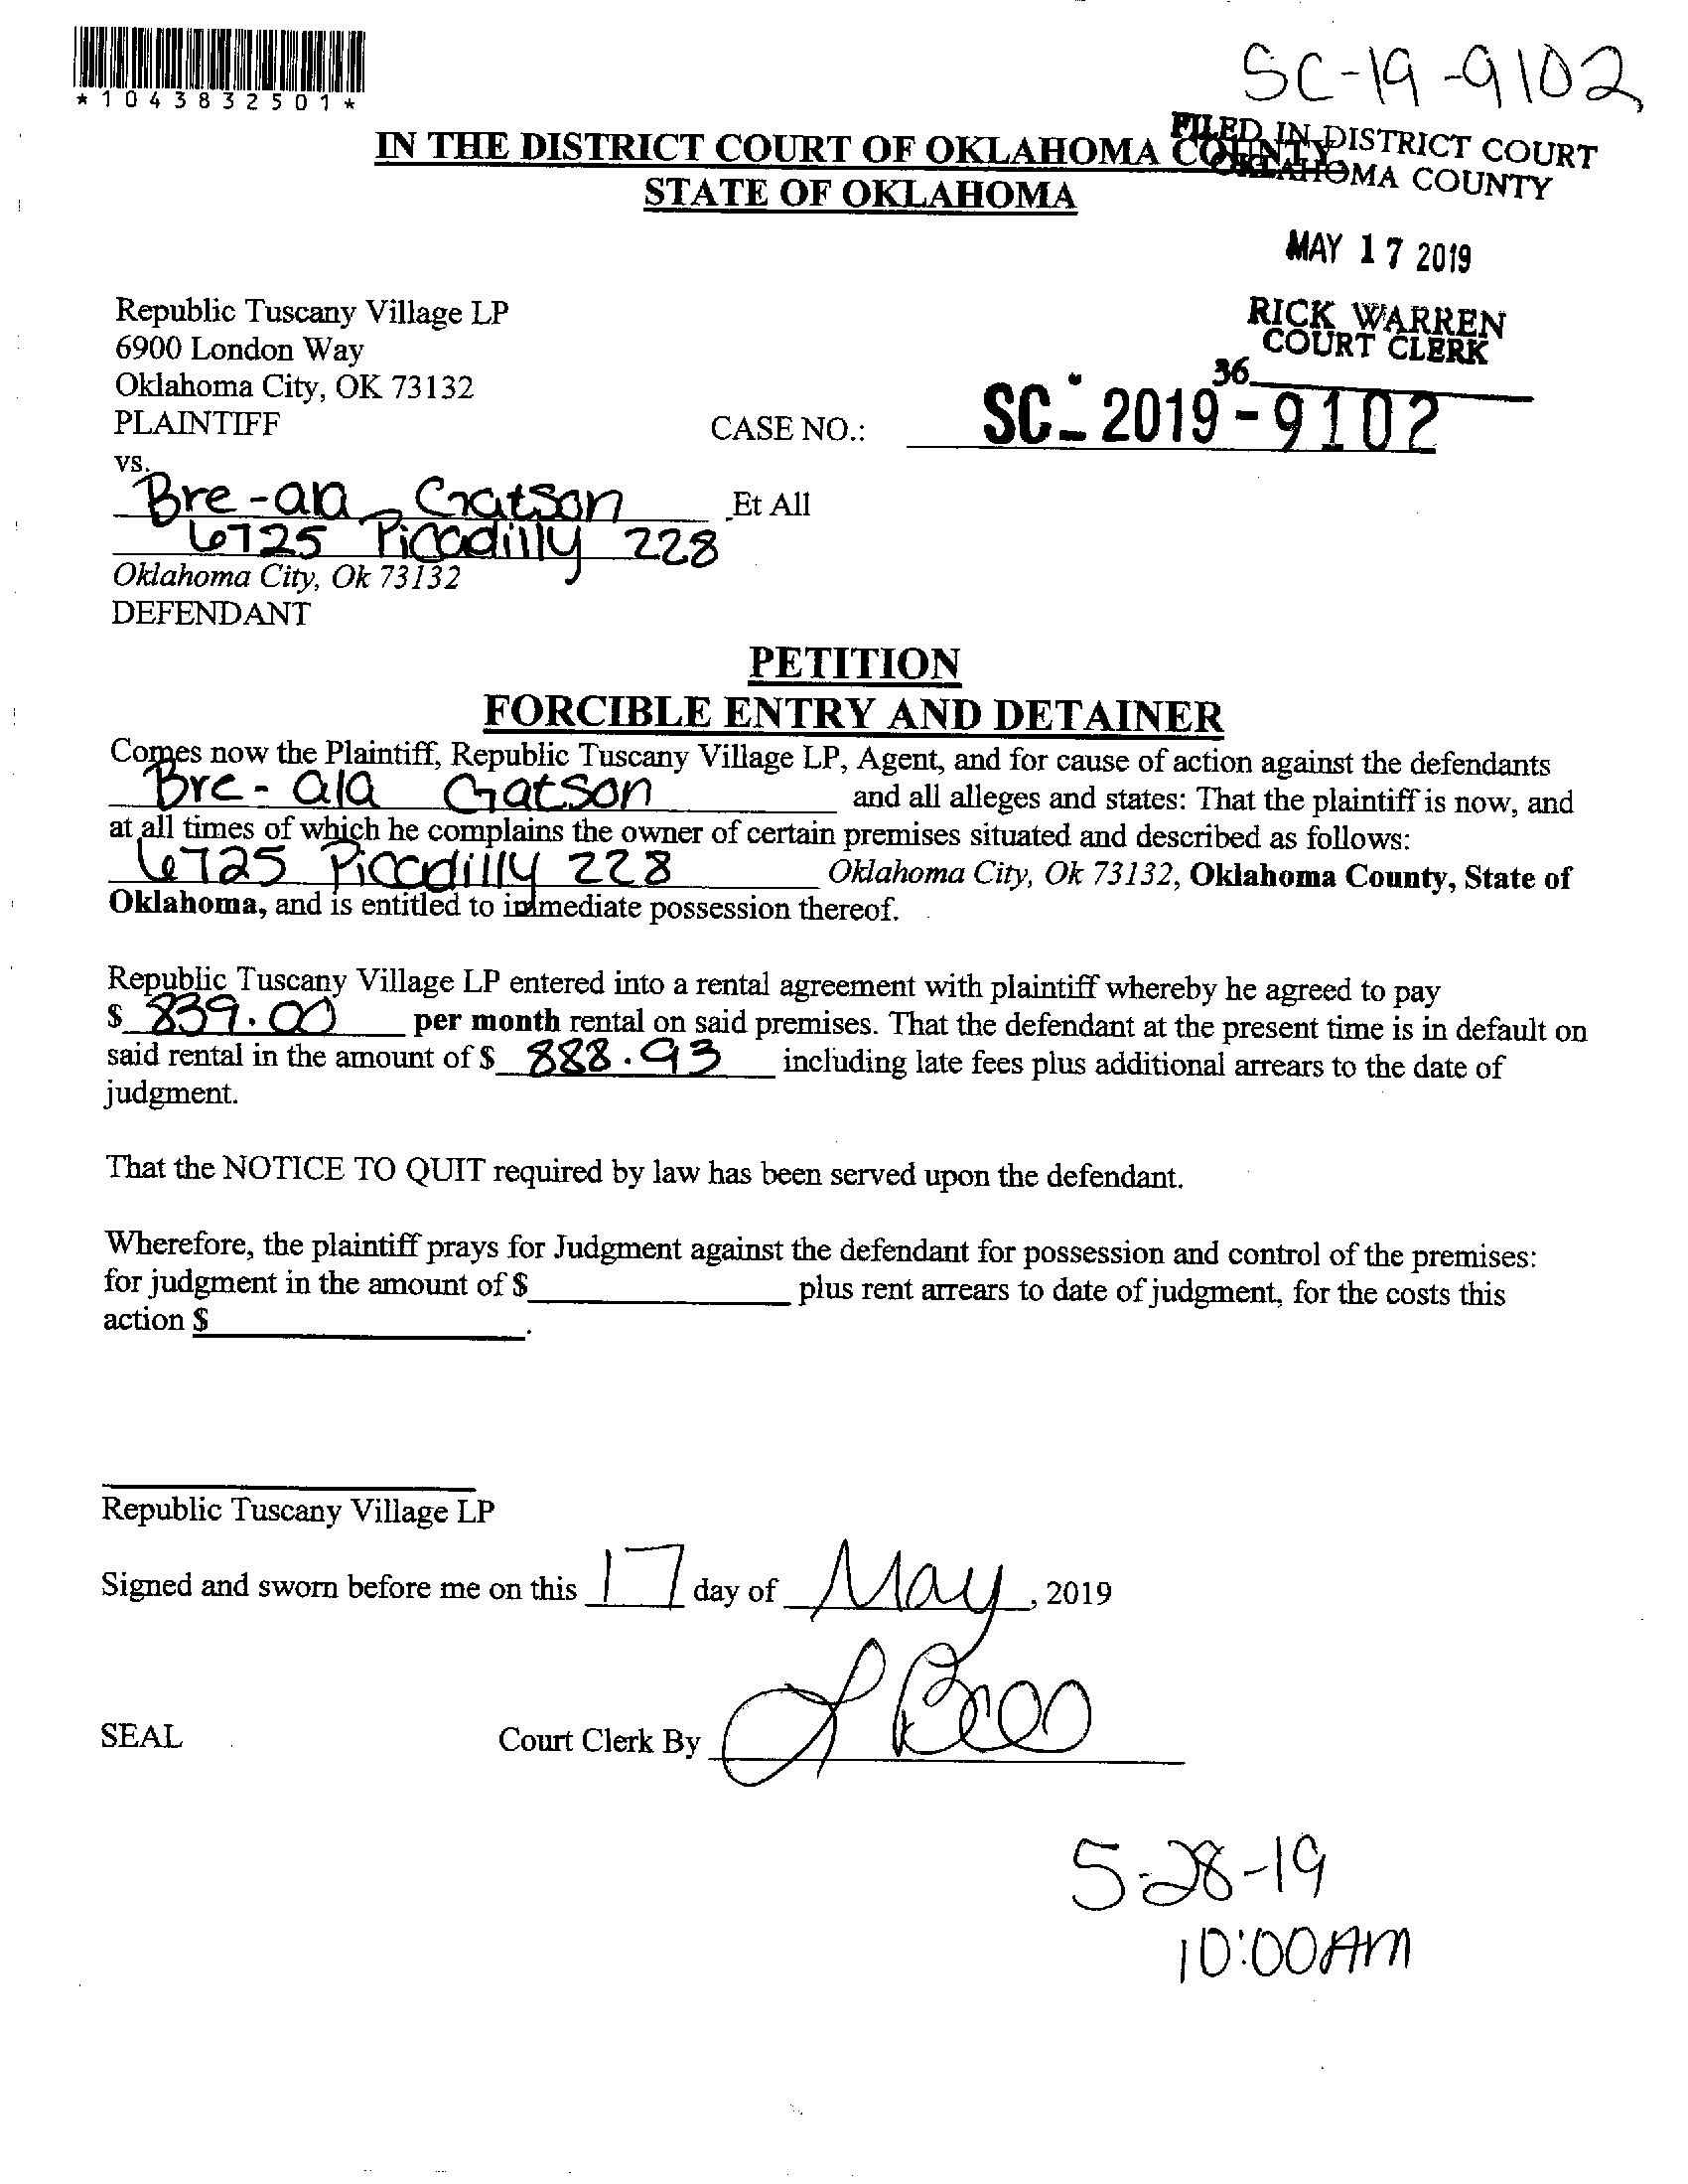 *1043832501*
SC-19-9102
IN THE DISTRICT COURT OF OKLAHOMA COUNTY
STATE OF OKLAHOMA
FILED IN DISTRICT COURT
OKLAHOMA COUNTY
MAY 17 2019
RICK WARREN
COURT CLERK
36
Republic Tuscany Village LP
6900 London Way
Oklahoma City, OK 73132
PLAINTIFF
CASE NO.: SC-2019-9102
vs.
Bre-ala Gatson ,Et All
6725 Picadilly 228
Oklahoma City, Ok 73132
DEFENDANT
PETITION
FORCIBLE ENTRY AND DETAINER
Comes now the Plaintiff, Republic Tuscany Village LP, Agent, and for cause of action against the defendants
Bre-ala Gatson and all alleges and states: That the plaintiff is now, and
at all times of which he complains the owner of certain premises situated and described as follows:
6725 Piccdilly 228 Oklahoma City, Ok 73132, Oklahoma County, State of
Oklahoma, and is entitled to immediate possession thereof.
Republic Tuscany Village LP entered into a rental agreement with plaintiff whereby he agreed to pay
$ 839.00 per month rental on said premises. That the defendant at the present time is in default on
said rental in the amount of $ 888.93 including late fees plus additional arrears to the date of
judgment.
That the NOTICE TO QUIT required by law has been served upon the defendant.
Wherefore, the plaintiff prays for Judgment against the defendant for possession and control of the premises:
for judgment in the amount of $ plus rent arrears to date of judgment, for the costs this
action $ .
Republic Tuscany Village LP
Signed and sworn before me on this 17 day of May, 2019
SEAL Court Clerk By
5-28-19
10:00AM